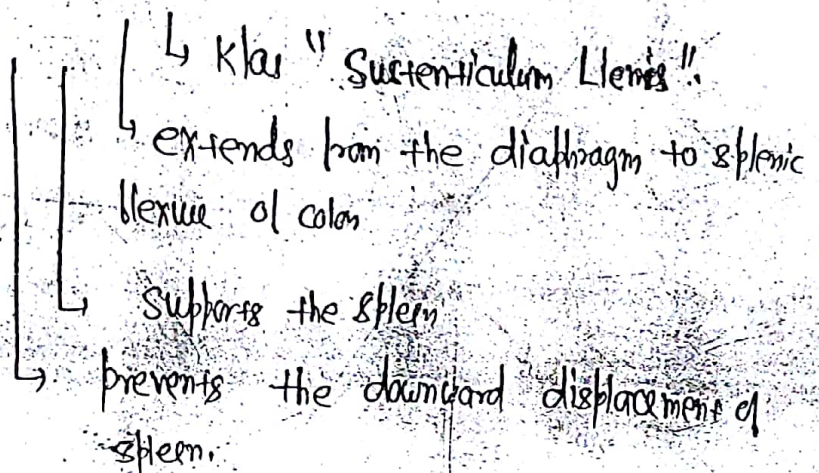 ↳ K/as "Sustenticulum Lienis".
↳ extends from the diaphragm to splenic
flexure of colon
↳ Supports the spleen
↳ prevents the downward displacement of
spleen.